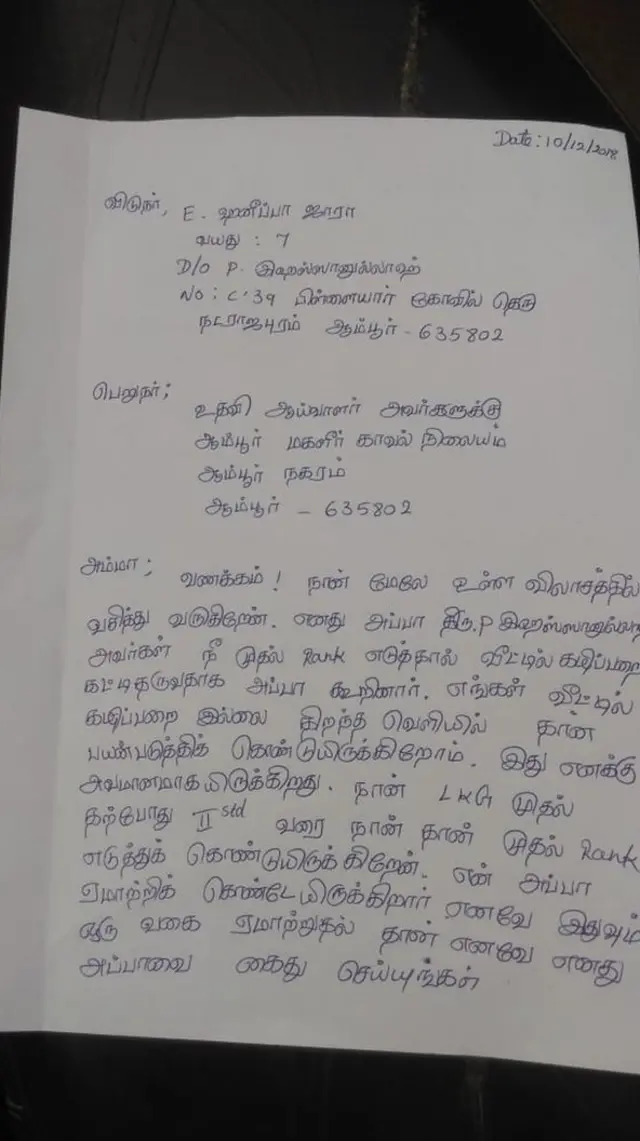 Date: 10/12/2018
விடுநர், E. ஹனீப்பா ஜாரா
வயது : 7
D/O P. இஹஸ்ஸானுல்லாஹ்
NO: C'39 பிள்ளையார் கோவில் தெரு
நடராஜபுரம் ஆம்பூர் - 635802
பெறுநர்;
உதவி ஆய்வாளர் அவர்களுக்கு
ஆம்பூர் மகளிர் காவல் நிலையம்
ஆம்பூர் நகரம்
ஆம்பூர் - 635802
அம்மா;
வணக்கம்! நான் மேலே உள்ள விலாசத்தில்
வசித்து வருகிறேண். எனது அப்பா திரு.P இஹஸ்ஸானுல்லாஹ்
அவர்கள் நீ முதல் Rank எடுத்தால் வீட்டில் கழிப்பறை
கட்டிதருவதாக அப்பா கூறினார். எங்கள் வீட்டில்
கழிப்பறை இல்லை திறந்த வெளியில் தான்
பயன்படுத்திக் கொண்டுயிருக்கிறோம். இது எனக்கு
அவமானமாகயிருக்கிறது. நான் LKG முதல்
தற்போது II std வரை நான் தான் முதல் Rank
எடுத்துக் கொண்டுயிருக்கிறேன். என் அப்பா
ஏமாற்றிக் கொண்டேயிருக்கிறார் எனவே இதுவும்
ஒரு வகை ஏமாற்றுதல் தாண் எனவே எனது
அப்பாவை கைது செய்யுங்கள்